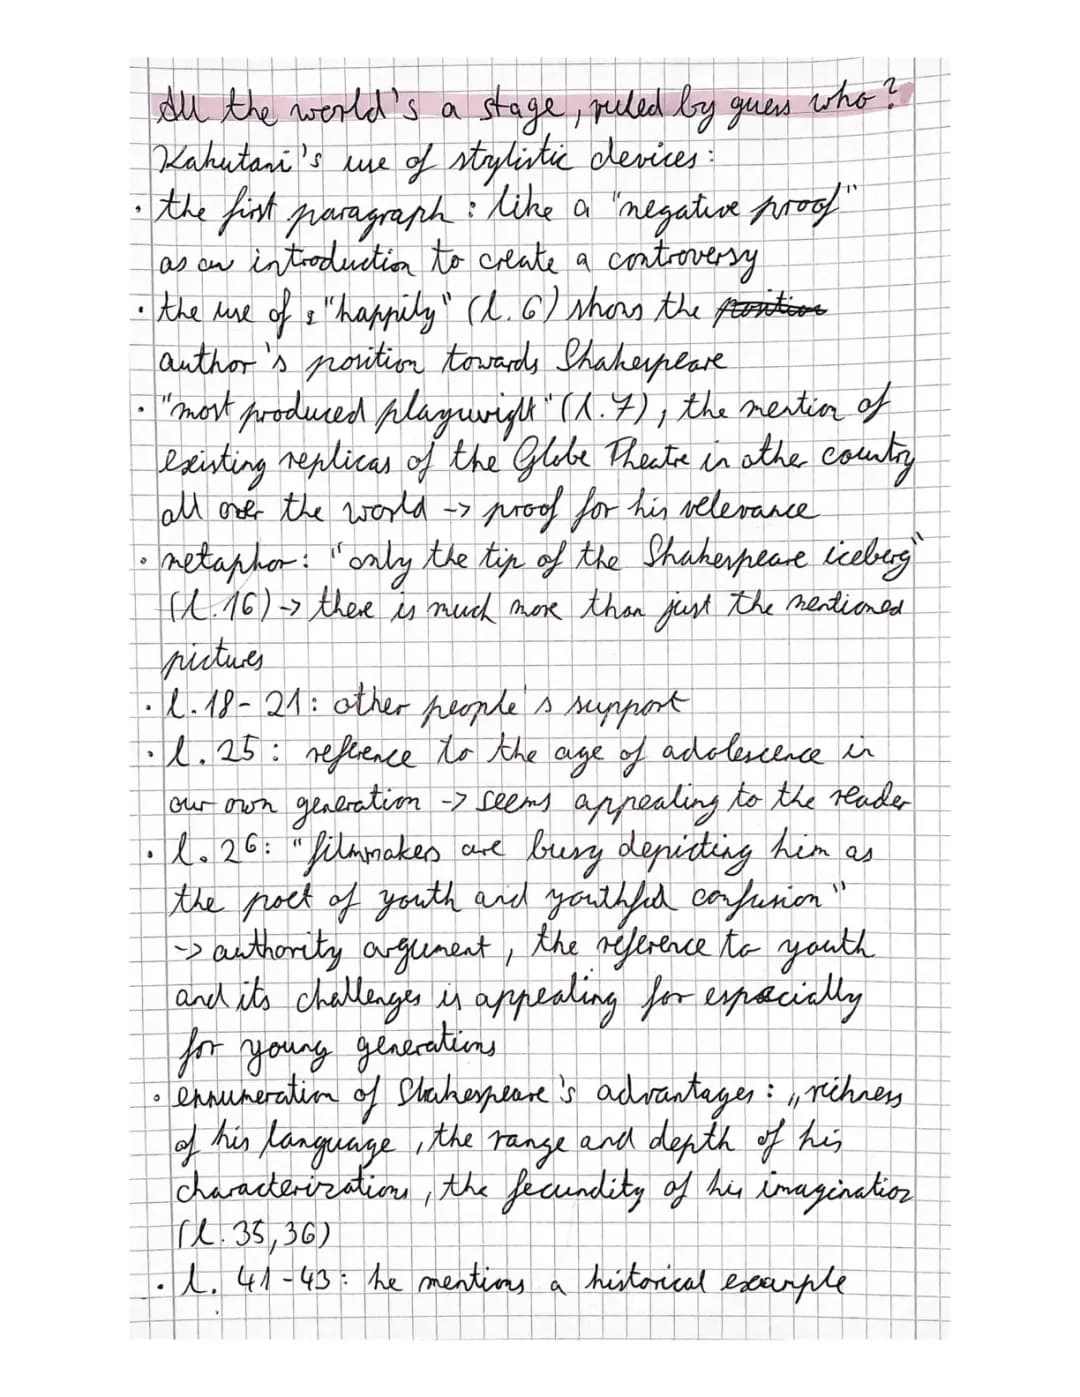 All the world's a stage, ruled by guess who?
Kakutani's use of stylistic devices:
· the first paragraph: like a "negative proof"
as an introduction to create a controversy
· the use of "happily" (l. 6) shows the position
author's position towards Shakespeare
· "most produced playwright" (l. 7), the mention of
existing replicas of the Globe Theatre in other country
all over the world -> proof for his relevance
· metaphor: "only the tip of the Shakespeare iceberg"
(l. 16) -> there is much more than just the mentioned
pictures
· l. 18-21: other people's support
· l. 25: refrence to the age of adolescence in
our own generation -> seems appealing to the reader
· l. 26: "filmmakers are busy depicting him as
the poet of youth and youthful confusion"
-> authority argument, the reference to youth
and its challenges is appealing for especially
for young generations
· ennumeration of Shakespeare's advantages: „richness
of his language, the range and depth of his
characterizations, the fecundity of his imagination
(l. 35, 36)
· l. 41-43: he mentions a historical example